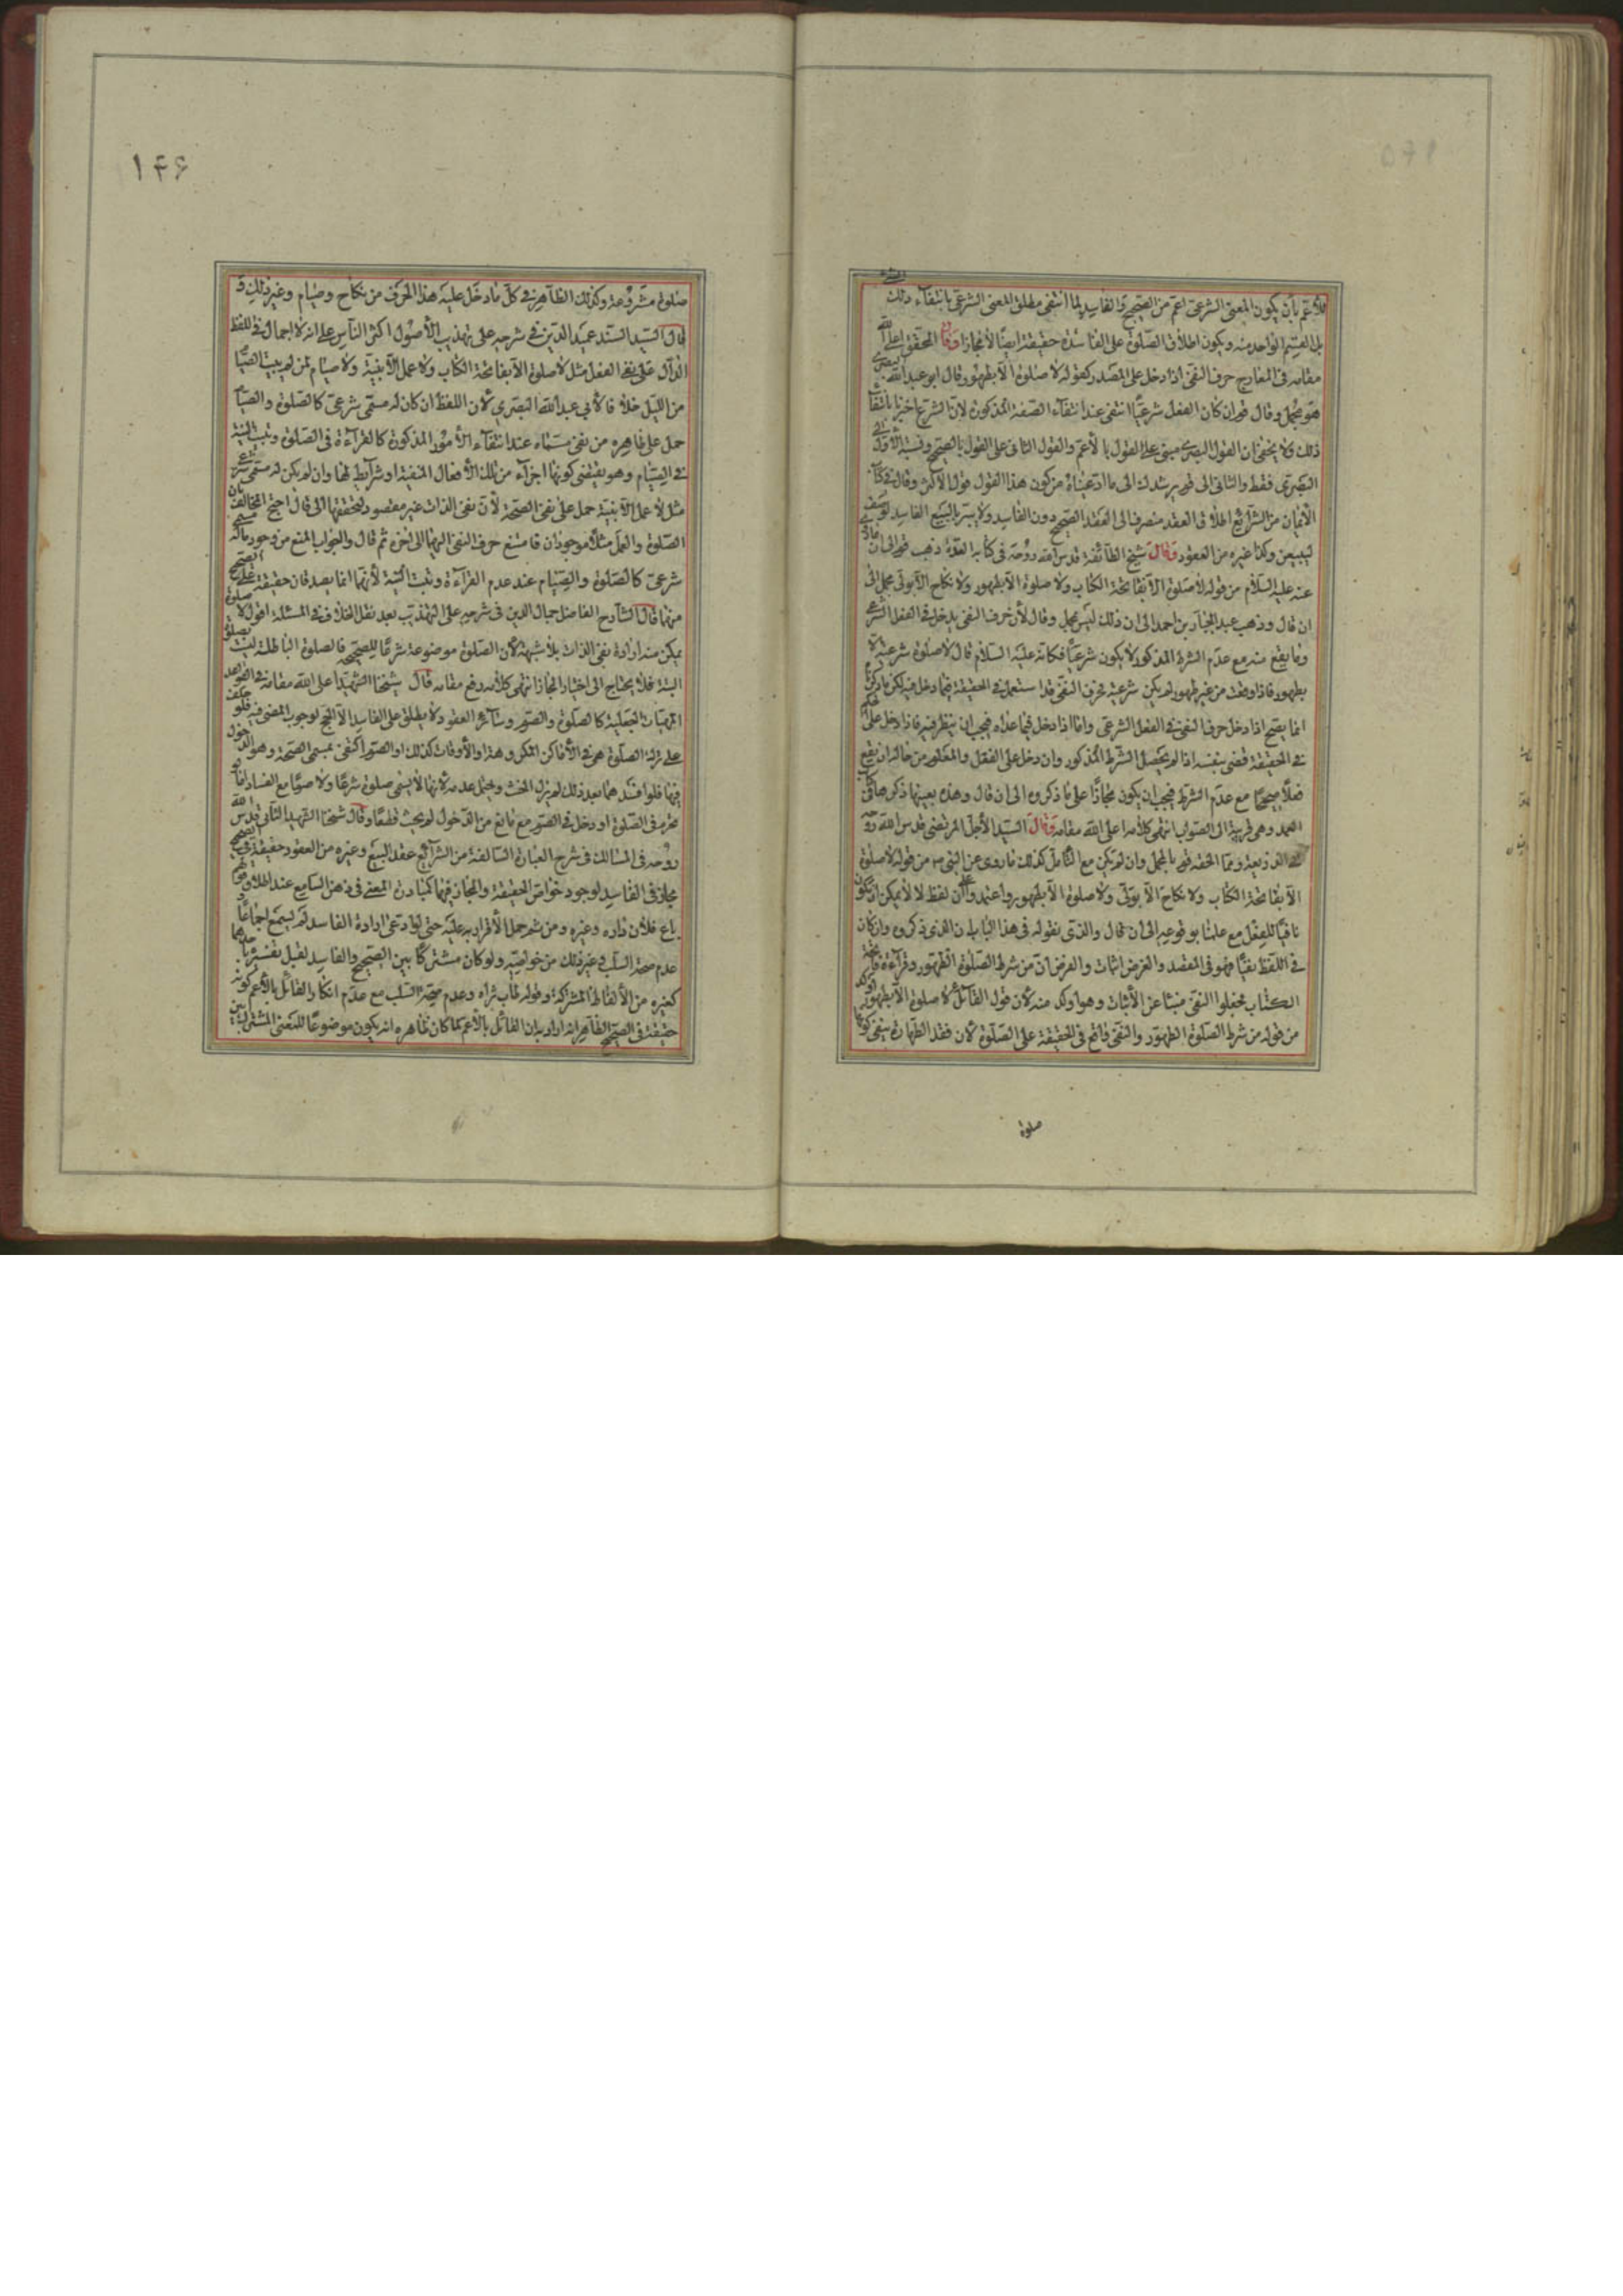 ١٤٥
للأعم بأن يكون المعنى الشرعي اعم من الصحيح والفاسد لما انتفى مطلق المعنى الشرعي بانتفاء ذلك
بل القسم الواحد منه ويكون اطلاق الصلوة على الفاسدة حقيقة ايضا لا مجازا وقال المحقق اعلى الله
مقامه في المعارج حرف النفي اذا دخل على المصدر كقوله لا صلوة الا بطهور قال ابو عبد الله البصري
هو مجمل وقال قوم ان كان الفعل شرعيا انتفى عند انتفاء الصفة المذكورة لان الشرع اخبر بانتفاء
ذلك ولا يخفى ان القول البصري مبني على القول بالأعم والقول الثاني على القول بالصحيح ونسبة الأول الى
البصري فقط والثاني الى قوم يرشدك الى ما ادعيناه من كون هذا القول قول الاكثر وقال في كتاب
الأيمان من الشرايع اطلاق العقد منصرف الى العقد الصحيح دون الفاسد ولا يبر بالبيع الفاسد لو حلف
ليبيعن وكذا غيره من العقود وقال شيخ الطائفة قدس الله روحه في كتابه العدة ذهب قوم الى ان
عنه عليه السلام من قوله لا صلوة الا بفاتحة الكتاب ولا صلوة الا بطهور ولا نكاح الا بولي مجمل الى
ان قال وذهب عبد الجبار بن احمد الى ان ذلك ليس بمجمل وقال لأن حرف النفي يدخل في الفعل الشرعي
وما يقع منه مع عدم الشرط المذكور لا يكون شرعيا فكانه عليه السلام قال لا صلوة شرعية الا
بطهور فاذا وقعت من غير طهور لم يكن شرعية فحرف النفي قد استعمل في الحقيقة فيما دخل فيه لكن ما ذكرناه
انما يصح اذا دخل حرف النفي في الفعل الشرعي واما اذا دخل فيما عداه فيجب ان ينظر فيه فاذا دخل على
في الحقيقة قضى بنفسه اذا لم يحصل الشرط المذكور وان دخل على الفعل والمعلوم من حاله ان يقع
فعلا صحيحا مع عدم الشرط فيجب ان يكون مجازا على ما ذكروه الى ان قال وهذه بعينها ذكرها في كتاب
العمد وهي قريبة الى الصواب انتهى كلامه اعلى الله مقامه وقال السيد الأجل المرتضى قدس الله روحه
في الذريعة ومما الحقه قوم بالمجمل وان لم يكن مع التأمل كذلك ما روى عن النبي ص من قوله لا صلوة
الا بفاتحة الكتاب ولا نكاح الا بولي ولا صلوة الا بطهور واعتمدوا على ان لفظ لا لا يمكن ان يكون
نافيا للفعل مع علمنا بوقوعه الى ان قال والذي نقوله في هذا الباب ان الذي ذكروه وان كان
في اللفظ نفيا فهو في المقصد والغرض اثبات والغرض ان من شرط الصلوة الطهور وقراءة فاتحة
الكتاب فجعلوا النفي منبئا عن الأثبات وهو اوكد منه لأن قول القائل لا صلوة الا بطهور اوكد
من قوله من شرط الصلوة الطهور والنفي واقع في الحقيقة على الصلوة لأن فقد الطهارة ينفي كونها
صلوة
١٤٦
صلوة مشروعة وكذلك الظاهر في كل ما دخل عليه هذا الحرف من نكاح وصيام وغير ذلك و
قال السيد السند عميد الدين في شرحه على تهذيب الأصول اكثر الناس على انه لا اجمال في اللفظ
الدال على نفي الفعل مثل لا صلوة الا بفاتحة الكتاب ولا عمل الا بنية ولا صيام لمن لم يبيت الصيام
من الليل خلافا لأبي عبد الله البصري لأن اللفظ ان كان له مسمى شرعي كالصلوة والصيام
حمل على ظاهره من نفي مسماه عند انتفاء الأمور المذكورة كالقراءة في الصلوة وتبييت النية
في الصيام وهو يقتضي كونها اجزاء من تلك الأفعال المنفية او شرايط لها وان لم يكن له مسمى شرعي
مثل لا عمل الا بنية حمل على نفي الصحة لأن نفي الذات غير مقصود لتحققها الى قال احتج المخالف بان
الصلوة والعمل مثلا موجودان فامتنع حرف النفي اليهما الى اخره ثم قال والجواب المنع من وجود ماله مسمى
شرعي كالصلوة والصيام عند عدم القراءة وتبييت النية لأنهما انما يصدقان حقيقة على الصحيح
منهما قال الشارح الفاضل جمال الدين في شرحه على التهذيب بعد نقل الخلاف في المسئلة اقول لا صلوة
يمكن منه ارادة نفي الذات بلا شبهة لأن الصلوة موضوعة شرعا للصحيحة فالصلوة الباطلة ليست بصلوة
البتة فلا يحتاج الى اختيار المجاز انتهى كلامه رفع مقامه قال شيخنا الشهيد اعلى الله مقامه في القواعد
المهيات الجعلية كالصلوة والصوم وسائر العقود لا يطلق على الفاسد الا الحج لوجوب المضي فيه فلو حلف
على ترك الصلوة في الأماكن المكروهة او الأوقات كذلك او الصوم اكتفى بمسمى الصحة وهو الدخول
فيها فلو افسدهما بعد ذلك لم يزل الحنث ويحتمل عدمه لأنها لا يسمى صلوة شرعا ولا صوما مع الفساد اما لو
تحرم في الصلوة او دخل في الصوم مع مانع من الدخول لم يحنث قطعا وقال شيخنا الشهيد الثاني قدس الله
روحه في المسالك في شرح العبارة السالفة من الشرايع عقد البيع وغيره من العقود حقيقة في الصحيح
مجاز في الفاسد لوجود خواص الحقيقة والمجاز فيهما كمبادرة المعنى في ذهن السامع عند اطلاق قولهم
باع فلان داره وغيره ومن ثم حمل الأقرار به عليه حتى لو ادعى ارادة الفاسد لم يسمع اجماعا و
عدم صحة السلب وغير ذلك من خواصه ولو كان مشتركا بين الصحيح والفاسد لقبل تفسيره باحدهما
كغيره من الألفاظ المشتركة وقوله وعدم صحة السلب مع عدم انكار القائل بالأعم كونه
حقيقة في الصحيح الظاهر انه اراد به ان القائل بالأعم لما كان ظاهره انه يكون موضوعا للمعنى المشترك بين